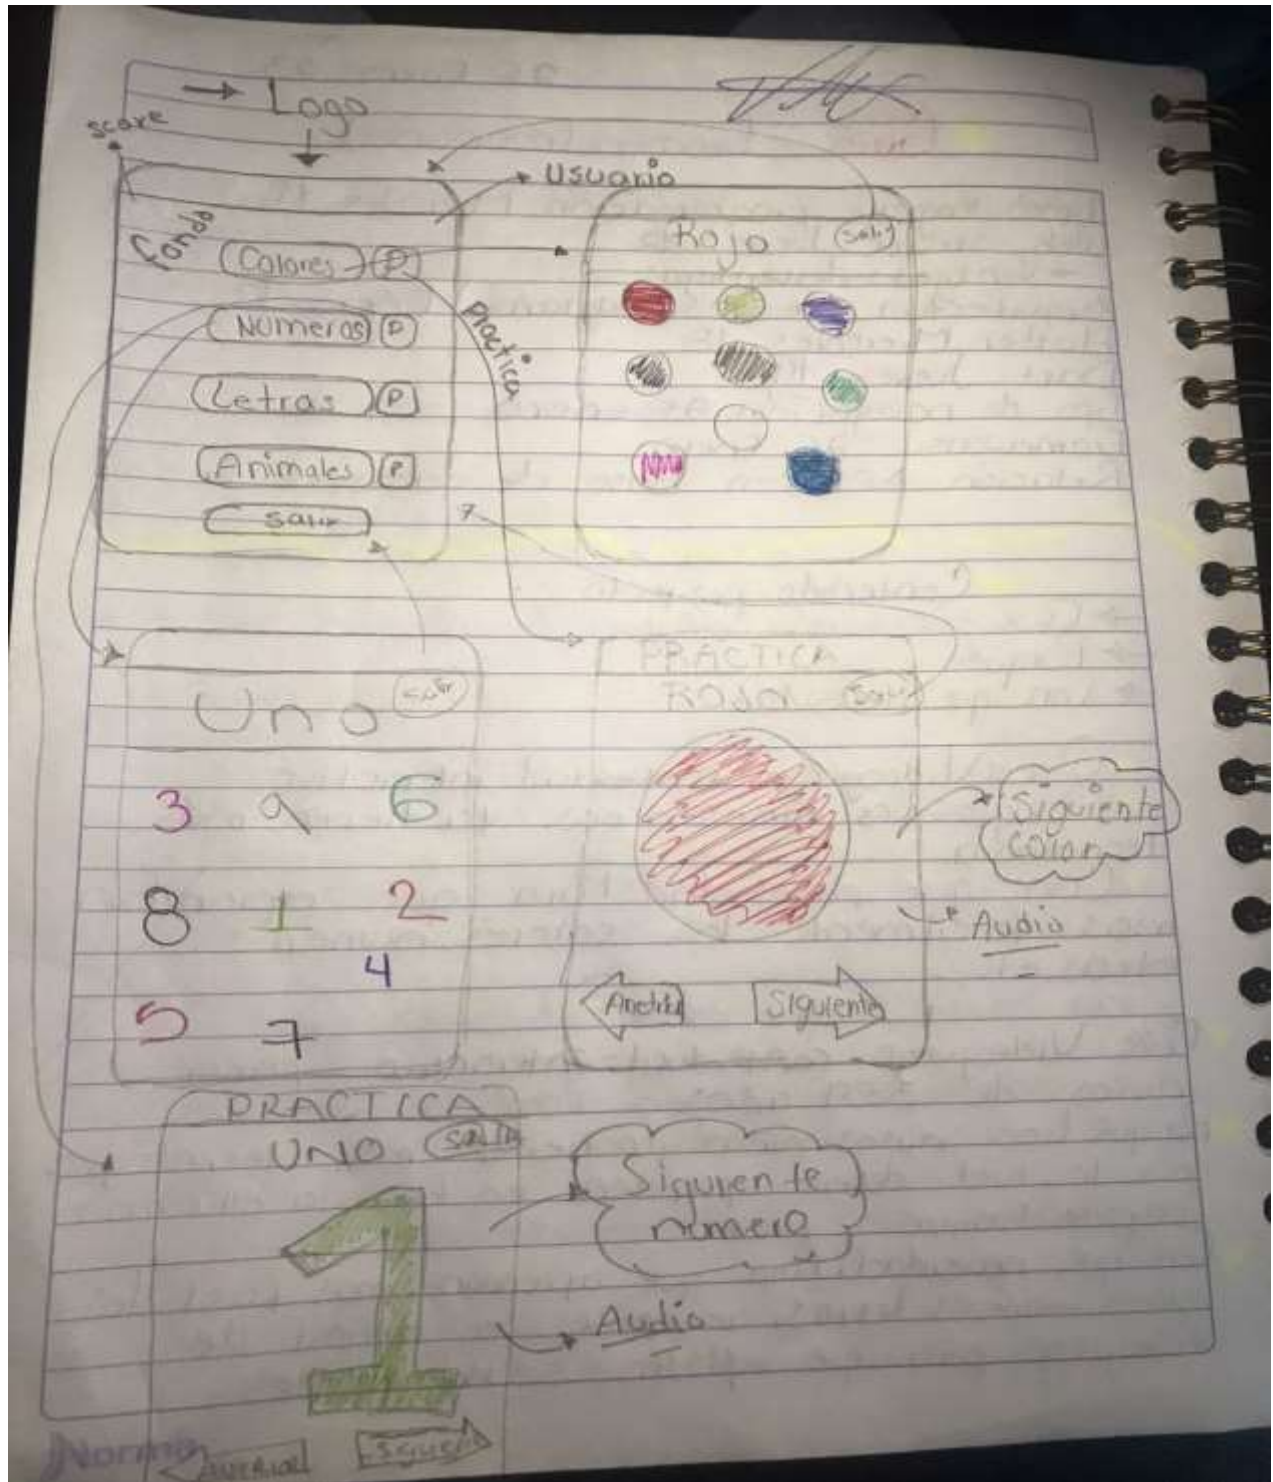 → Logo
score
Usuario
Fondo
Colores P
Numeros P
Letras P
Animales P
Salir
Practica
Rojo Salir
Uno Salir
3 9 6
8 1 2
4
5 7
PRACTICA
ROJO Salir
Siguiente
color
Audio
Siguiente
PRACTICA
UNO SALIR
1
Siguiente
numero
Audio
Norma